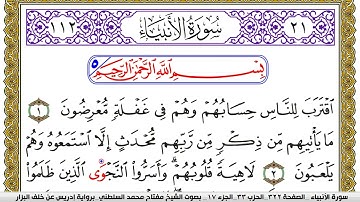 ٢١ سُورَةُ الأَنبِيَاءِ ١١٢
بِسْمِ اللَّهِ الرَّحْمَٰنِ الرَّحِيمِ ٥
اَقْتَرَبَ لِلنَّاسِ حِسَابُهُمْ وَهُمْ فِي غَفْلَةٍ مُّعْرِضُونَ ١
مَا يَأْتِيهِم مِّن ذِكْرٍ مِّن رَّبِّهِم مُّحْدَثٍ إِلَّا اسْتَمَعُوهُ وَهُمْ
يَلْعَبُونَ ٢ لَاهِيَةً قُلُوبُهُمْ وَأَسَرُّوا النَّجْوَى الَّذِينَ ظَلَمُوا
سورة الأنبياء . الصفحة ٣٢٢ . الحزب ٣٣ . الجزء ١٧ . بصوت الشيخ مفتاح محمد السلطني . برواية إدريس عن خلف البزار